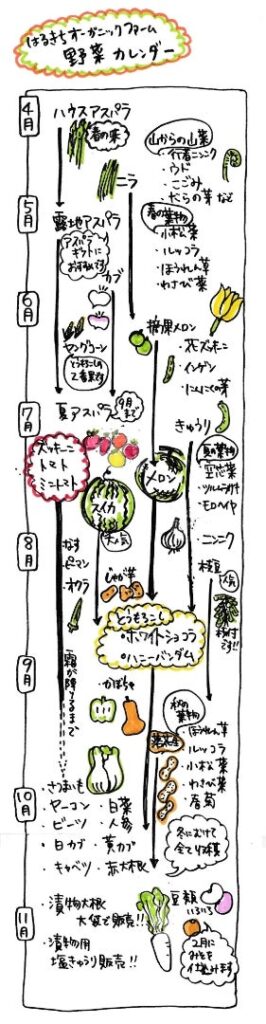 はるきちオーガニックファーム
野菜カレンダー
4月
ハウスアスパラ
春の味
山からの山菜
・行者ニンニク
・ウド
・こごみ
・たらの芽 など
ニラ
5月
露地アスパラ
アスパラ
ギフトに
おすすめです
カブ
春の葉物
・小松菜
・ルッコラ
・ほうれん草
・わさび菜
6月
ヤングコーン
摘果メロン
・花ズッキーニ
・インゲン
・にんにくの芽
7月
夏アスパラ
9月
まで
きゅうり
ズッキーニ
トマト
ミニトマト
メロン
スイカ
夏の葉物
・空芯菜
・ツルムラサキ
・モロヘイヤ
8月
・ニンニク
なす
ピーマン
・オクラ
じゃが芋
枝豆
人気
枝付
です!!
とうもろこし
・ホワイトショコラ
・ハニーバンダム
霜が降りるまで
9月
・かぼちゃ
秋の
葉物
・ほうれん草
ルッコラ
・小松菜
・わさび菜
・春菊
落花生
10月
さつまいも
・ヤーコン
・白菜
・ビーツ
・人参
・白カブ
・黄カブ
・キャベツ
・赤大根
冬にむけて
全て収穫
11月
・漬物大根
大袋で販売!!
・漬物用
塩きゅうり販売!!
豆類
いろいろ
2月に
みそを
仕込みます